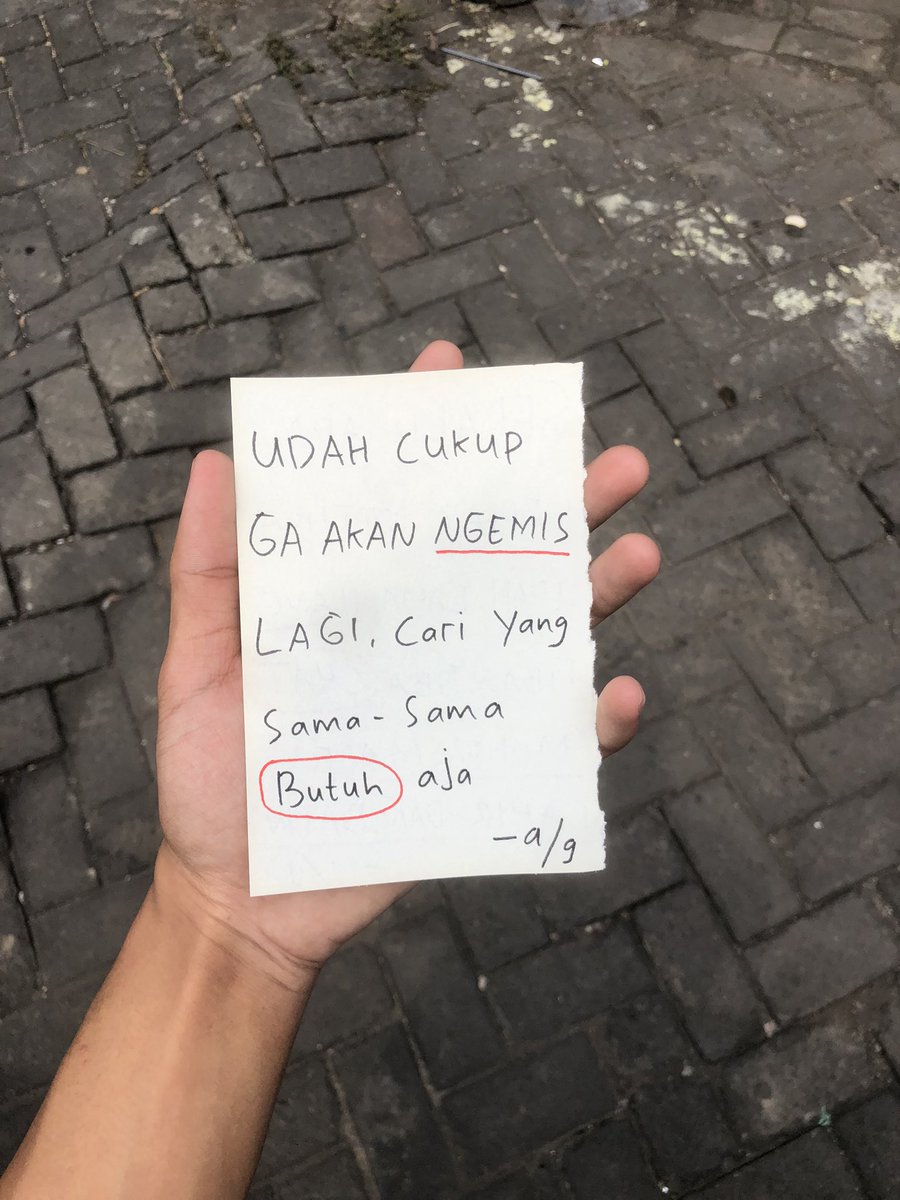 UDAH CUKUP
GA AKAN NGEMIS
LAGI, Cari Yang
Sama - Sama
Butuh aja
- a/g